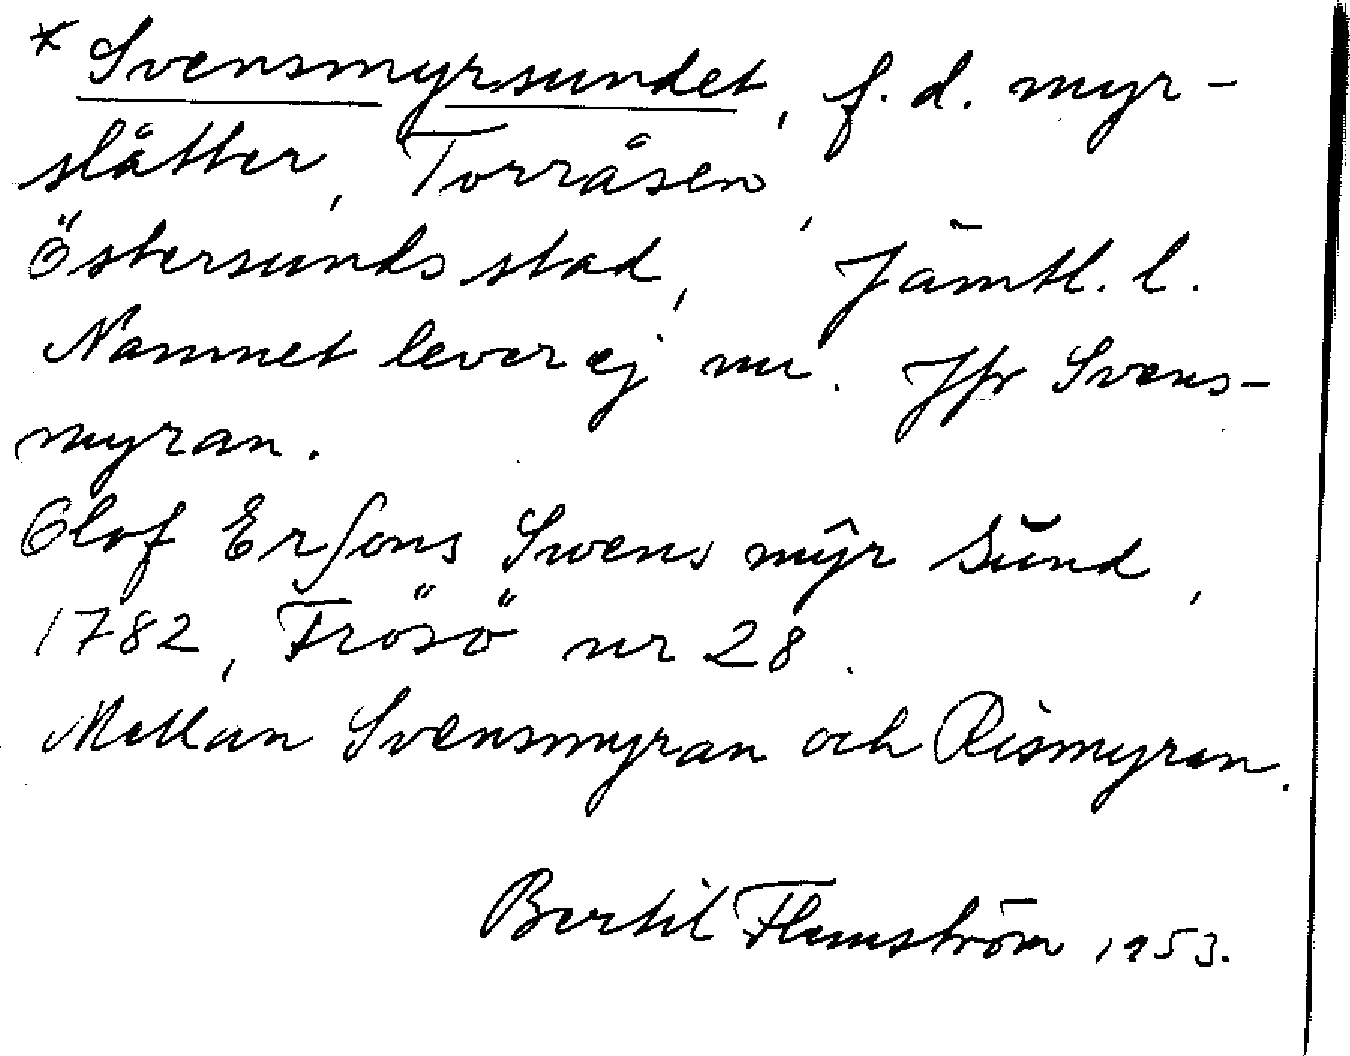 * Svensmyrsundet, f.d. myr-
slåtter, Torråsen,
Östersunds stad, Jämtl. l.
Namnet lever ej nu. Jfr Svens-
myran.
Olof Ersons Swens mÿr Sund,
1782, Frösö nr 28.
Mellan Svensmyran och Rismyran.
Bertil Flemström 1953.